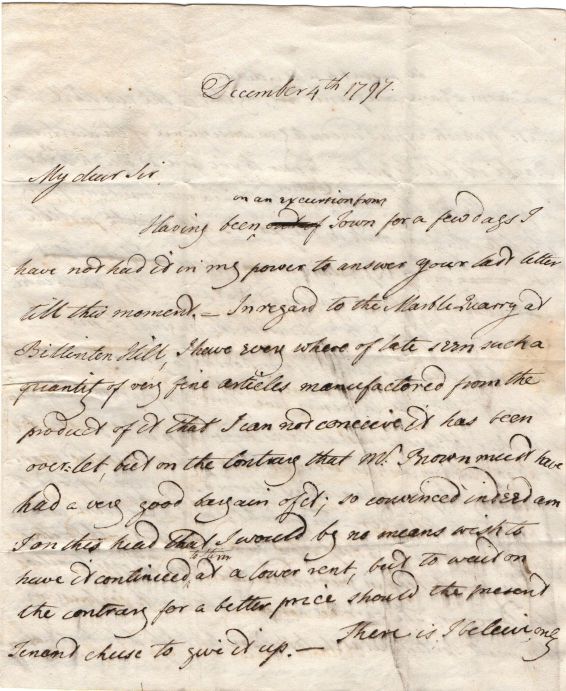 December 4th 1797.
My dear Sir,
on an excursion from
Having been out of Town for a few days I
have not had it in my power to answer your last letter
till this moment. – In regard to the Marble Quarry at
Billinton Hill, I have every where of late seen such a
quantity of very fine articles manufactored from the
product of it that I can not conceive it has been
over-let, but on the contrary that Mr. Brown must have
had a very good bargain of it; so convinced indeed am
I on this head that I would by no means wish to
have it continued at a lower rent, but to wait on
the contrary for a better price should the present
Tenant chuse to give it up. –
There is I beleive only